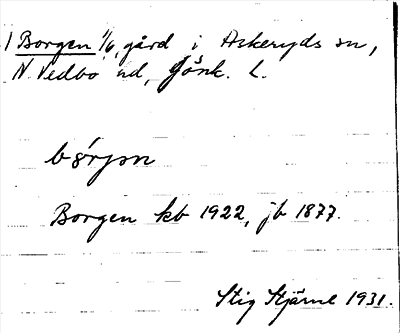 1 Borgen 1/6, gård i Askeryds sn,
N. Vedbo hd, Jönk. L.
bo̕rjɔn
Borgen kb 1922, jb 1877.
Stig Stjärne 1931.